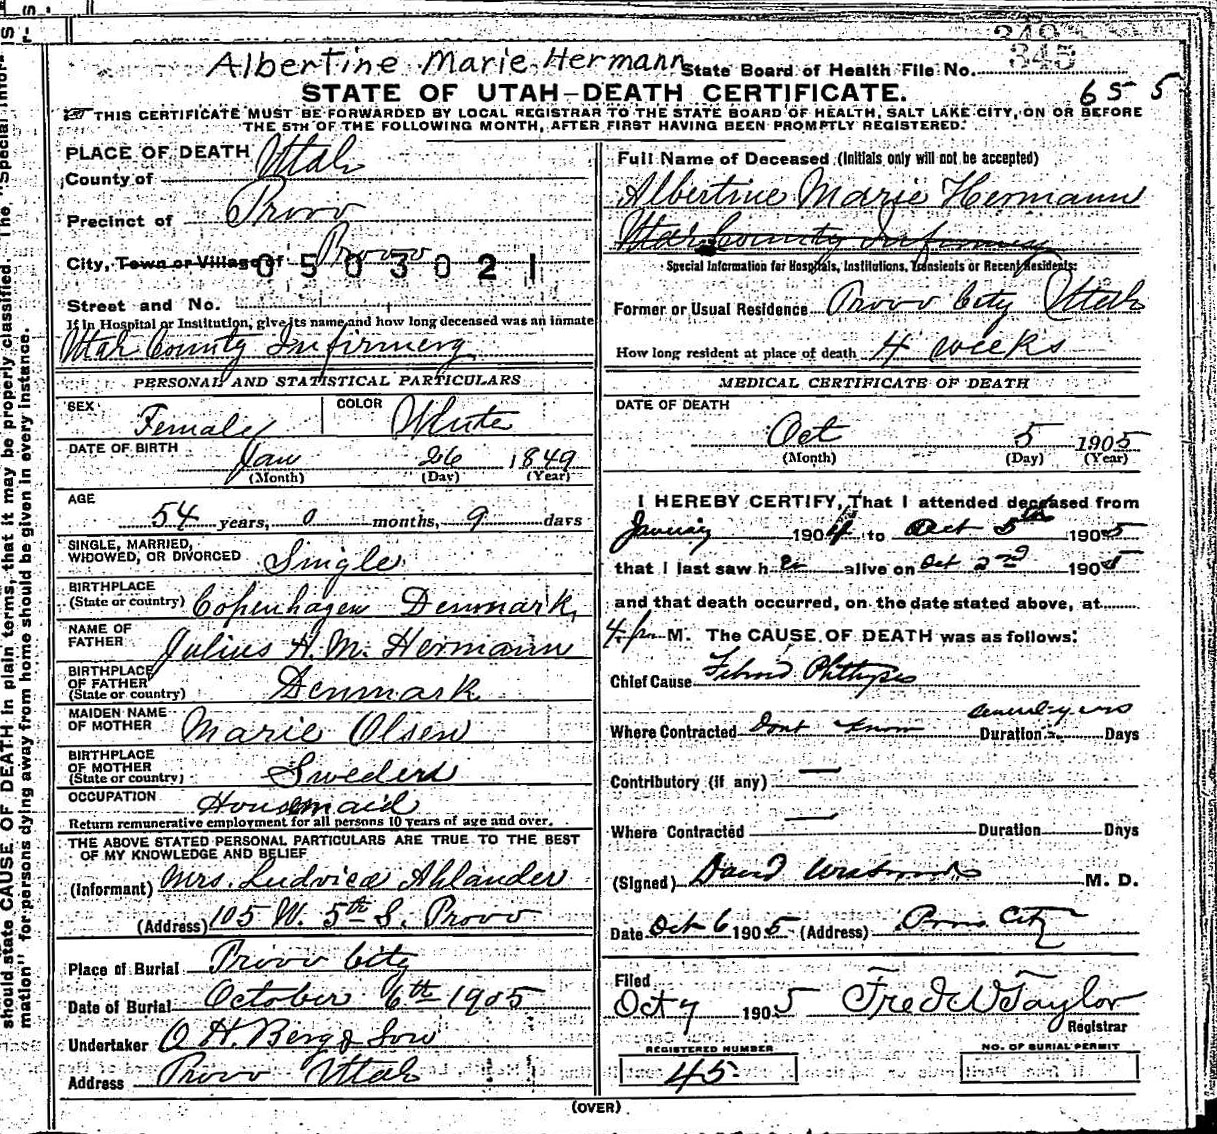 Albertine Marie Hermann State Board of Health File No. 345
STATE OF UTAH—DEATH CERTIFICATE. 655
THIS CERTIFICATE MUST BE FORWARDED BY LOCAL REGISTRAR TO THE STATE BOARD OF HEALTH, SALT LAKE CITY, ON OR BEFORE
THE 5TH OF THE FOLLOWING MONTH, AFTER FIRST HAVING BEEN PROMPTLY REGISTERED.
PLACE OF DEATH
County of Utah
Precinct of Provo
City, Town or Village of Provo
0503021
Street and No.
If in Hospital or Institution, give its name and how long deceased was an inmate
Utah County Infirmery
PERSONAL AND STATISTICAL PARTICULARS
SEX Female COLOR White
DATE OF BIRTH Jan 26 1849
(Month) (Day) (Year)
AGE
54 years, 0 months, 9 days
SINGLE, MARRIED,
WIDOWED, OR DIVORCED Single
BIRTHPLACE
(State or country) Copenhagen Denmark
NAME OF
FATHER Julius H. M. Hermann
BIRTHPLACE
OF FATHER
(State or country) Denmark
MAIDEN NAME
OF MOTHER Marie Olsen
BIRTHPLACE
OF MOTHER
(State or country) Sweden
OCCUPATION Housemaid
Return remunerative employment for all persons 10 years of age and over.
THE ABOVE STATED PERSONAL PARTICULARS ARE TRUE TO THE BEST
OF MY KNOWLEDGE AND BELIEF
(Informant) Mrs. Ludvica Ahlander
(Address) 105 W. 5th S. Provo
Place of Burial Provo City
Date of Burial October 6th 1905
Undertaker O H. Berg & Son
Address Provo Utah
Full Name of Deceased (Initials only will not be accepted)
Albertine Marie Hermann
Utah County Infirmery
Special Information for Hospitals, Institutions, Transients or Recent Residents:
Former or Usual Residence Provo City Utah
How long resident at place of death 4 weeks
MEDICAL CERTIFICATE OF DEATH
DATE OF DEATH
Oct 5 1905
(Month) (Day) (Year)
I HEREBY CERTIFY, That I attended deceased from
January 1904 to Oct 5th 1905
that I last saw her alive on Oct 2nd 1905
and that death occurred, on the date stated above, at
4 p M. The CAUSE OF DEATH was as follows:
Chief Cause Fibroid Phthysis
Where Contracted Dont know Duration several years Days
Contributory (if any) —
Where Contracted — Duration Days
(Signed) David Westwood M. D.
Date Oct 6 1905 (Address) Provo City
Filed
Oct 7 1905 Fred W Taylor
Registrar
REGISTERED NUMBER
45
NO. OF BURIAL PERMIT
(OVER)
should state CAUSE OF DEATH in plain terms, that it may be properly classified. The "Special Infor-
mation" for persons dying away from home should be given in every instance.